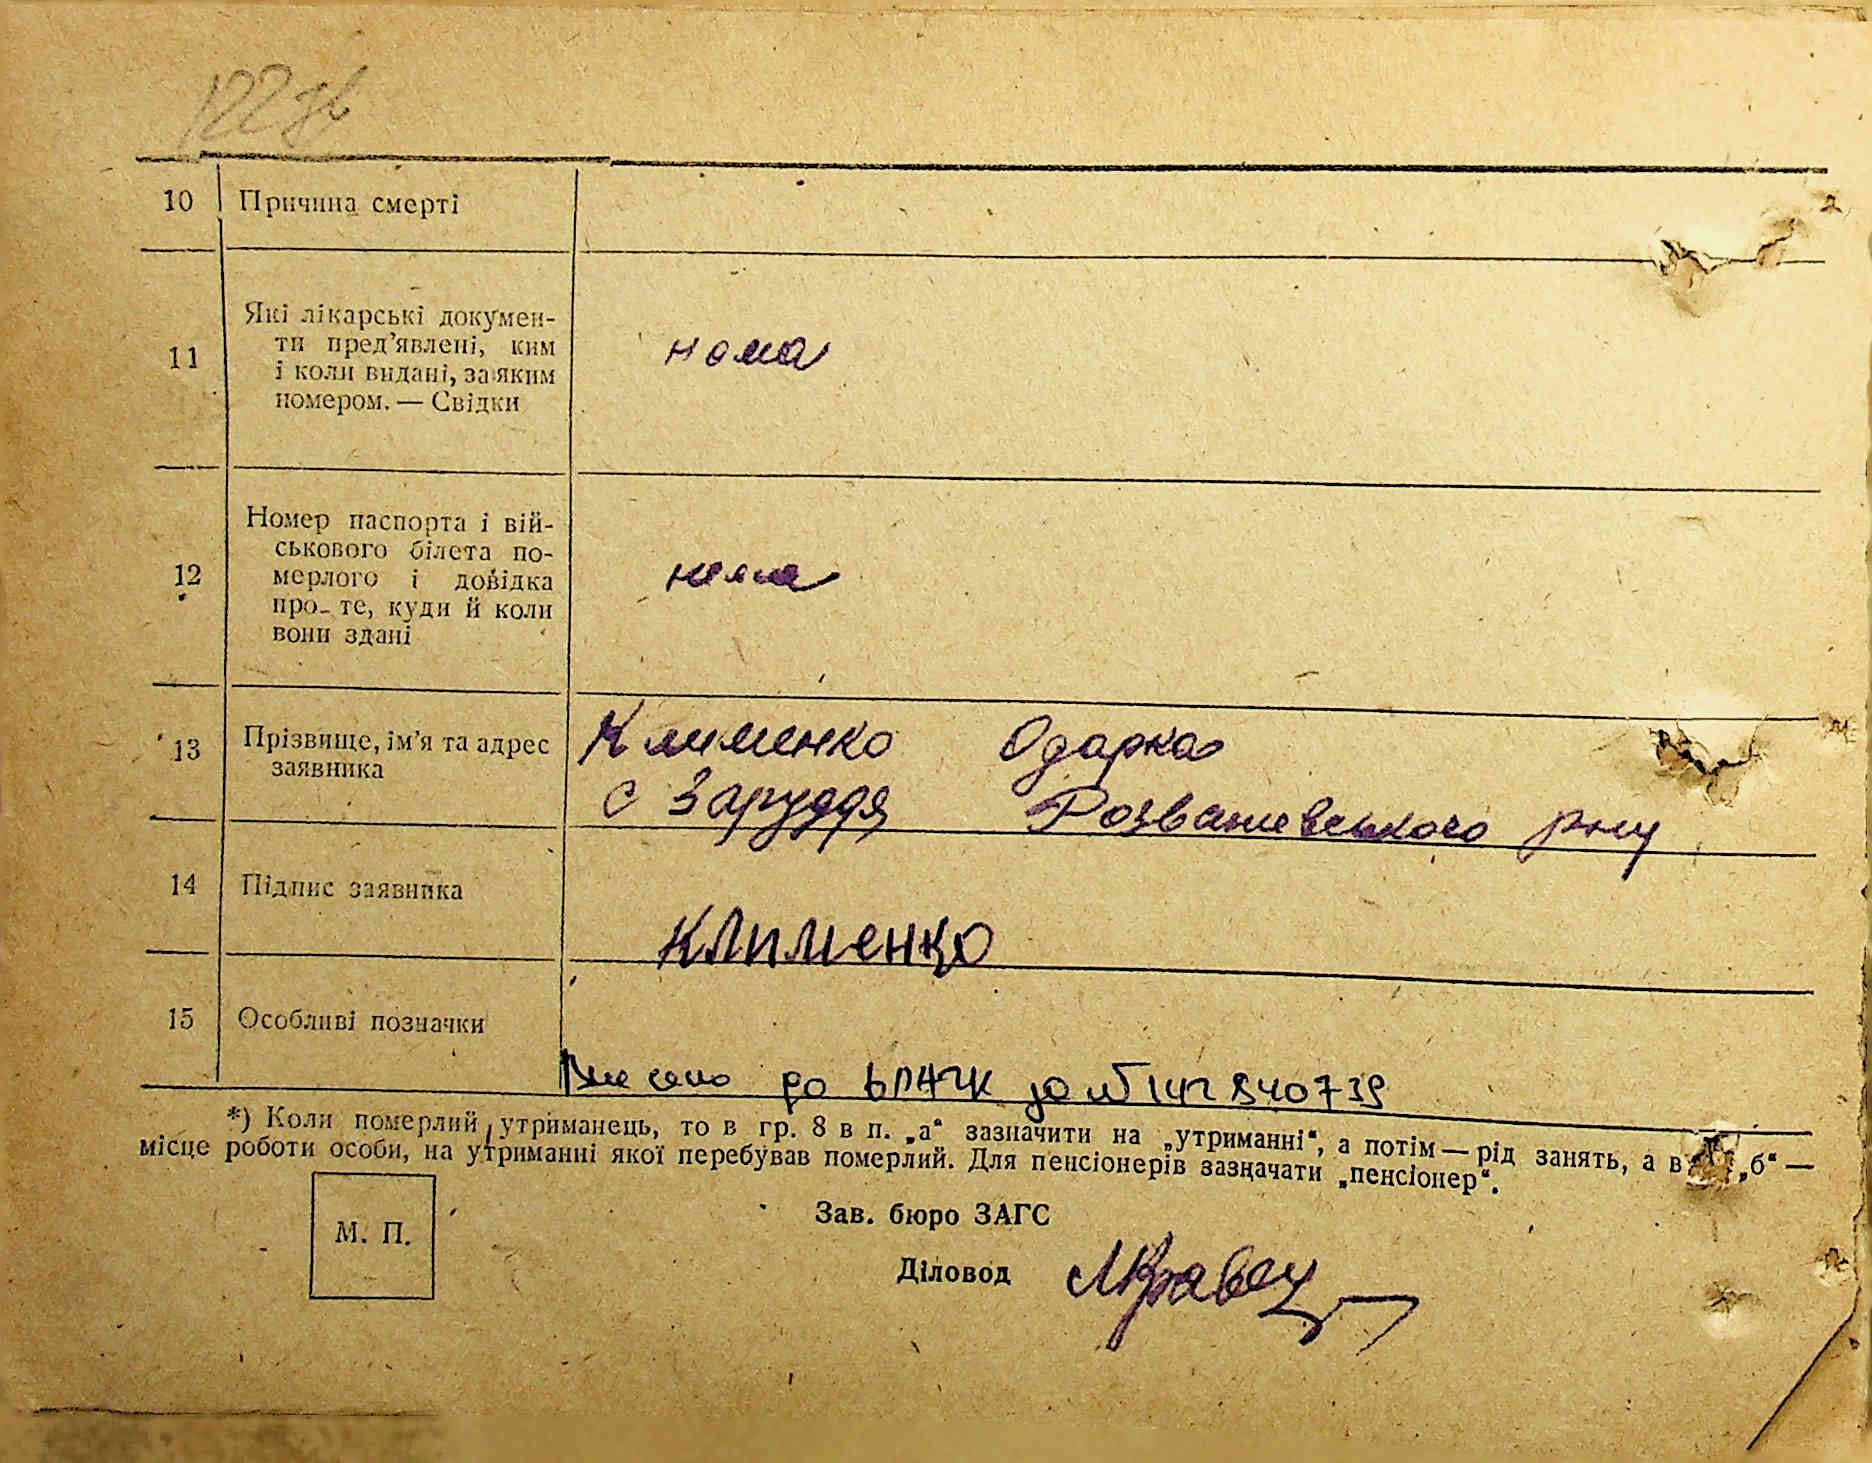 122 зв
10 Причина смерті
11 Які лікарські докумен-
ти пред’явлені, ким
і коли видані, за яким
номером. — Свідки
нема
12 Номер паспорта і вій-
ськового білета по-
мерлого і довідка
про те, куди й коли
вони здані
нема
13 Прізвище, ім’я та адрес
заявника
Клименко Одарка
с Заруддя Розважевського р-ну
14 Підпис заявника
Клименко
15 Особливі позначки
Внесено до ДРАЦС за №
*) Коли померлий утриманець, то в гр. 8 в п. „а“ зазначити на „утриманні“, а потім — рід занять, а в „б“ —
місце роботи особи, на утриманні якої перебував померлий. Для пенсіонерів зазначати „пенсіонер“.
М. П.
Зав. бюро ЗАГС
Діловод Кравец